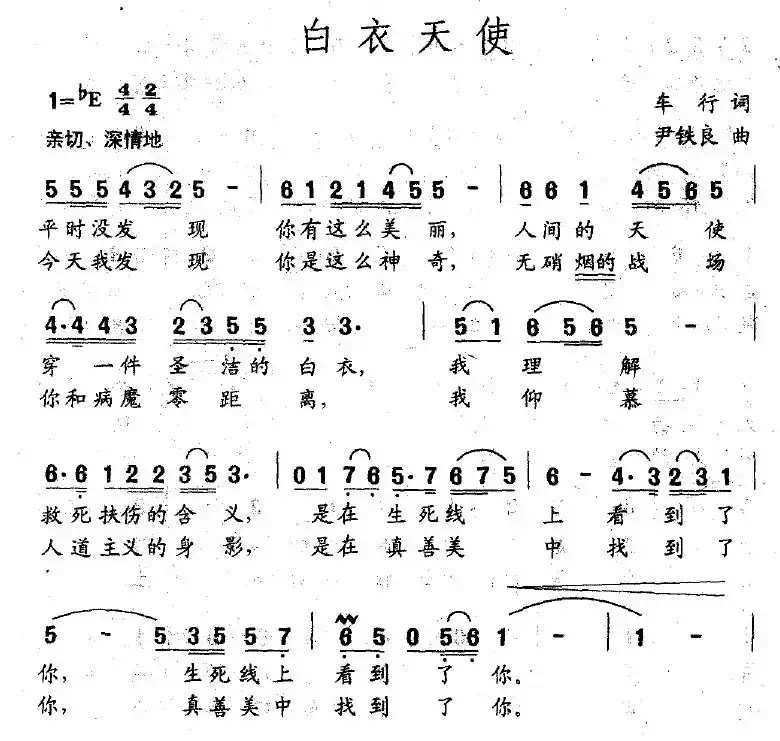 白衣天使
1=♭E 4/4 2/4
车行 词
亲切、深情地
尹铁良 曲
5 5 5 4 3 2 5 - | 6 1 2 1 4 5 5 - | 6 6 1 4 5 6 5
平时没发现 你有这么美丽, 人间的天使
今天我发现 你是这么神奇, 无硝烟的战场
4·4 4 3 2 3 5 5 3 3· | 5 1 6 5 6 5 -
穿一件圣洁的白衣, 我理解
你和病魔零距离, 我仰慕
6·6 1 2 2 3 5 3· | 0 1 7 6 5·7 6 7 5 | 6 - 4·3 2 3 1
救死扶伤的含义, 是在生死线上看到了
人道主义的身影, 是在真善美中找到了
5 - 5 3 5 5 7 | 6 5 0 5 6 1 - | 1 -
你, 生死线上看到了你。
你, 真善美中找到了你。